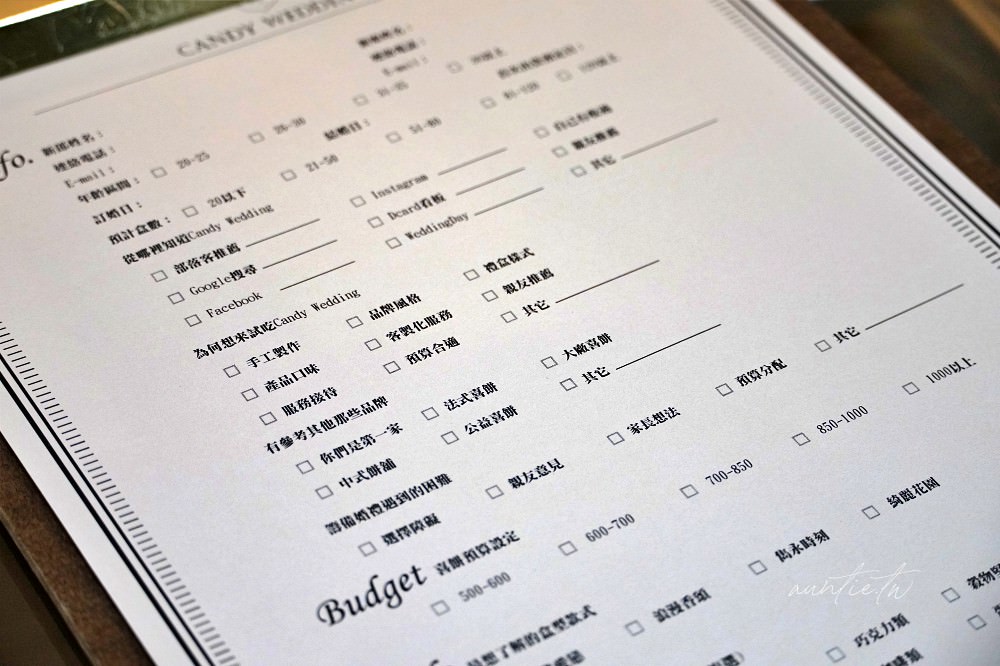 CANDY WEDDIN
fo.
新郎姓名：
連絡電話：
E-mail：
年齡區間： □ 20-25 □ 26-30 □ 31-35
訂婚日： 結婚日：
預計盒數： □ 20以下 □ 21-50 □ 51-80 □ 81-120
從哪裡知道Candy Wedding
□ 部落客推薦 □ Instagram □ 自己有吃過
□ Google搜尋 □ Dcard看板 □ 親友推薦
□ Facebook □ WeddingDay □ 其它
為何想來試吃Candy Wedding
□ 手工製作 □ 品牌風格 □ 禮盒樣式
□ 產品口味 □ 客製化服務 □ 親友推薦
□ 服務接待 □ 預算合適 □ 其它
有參考其他那些品牌
□ 你們是第一家 □ 法式喜餅 □ 大廠喜餅
□ 中式餅舖 □ 公益喜餅 □ 其它
籌備婚禮遇到的困難
□ 選擇障礙 □ 親友意見 □ 家長想法 □ 預算分配 □ 其它
Budget 喜餅預算設定
□ 500-600 □ 600-700 □ 700-850 □ 850-1000 □ 1000以上
想了解的盒型款式
□ 浪漫香頌 □ 雋永時刻 □ 綺麗花園
□ 巧克力類
auntie.tw